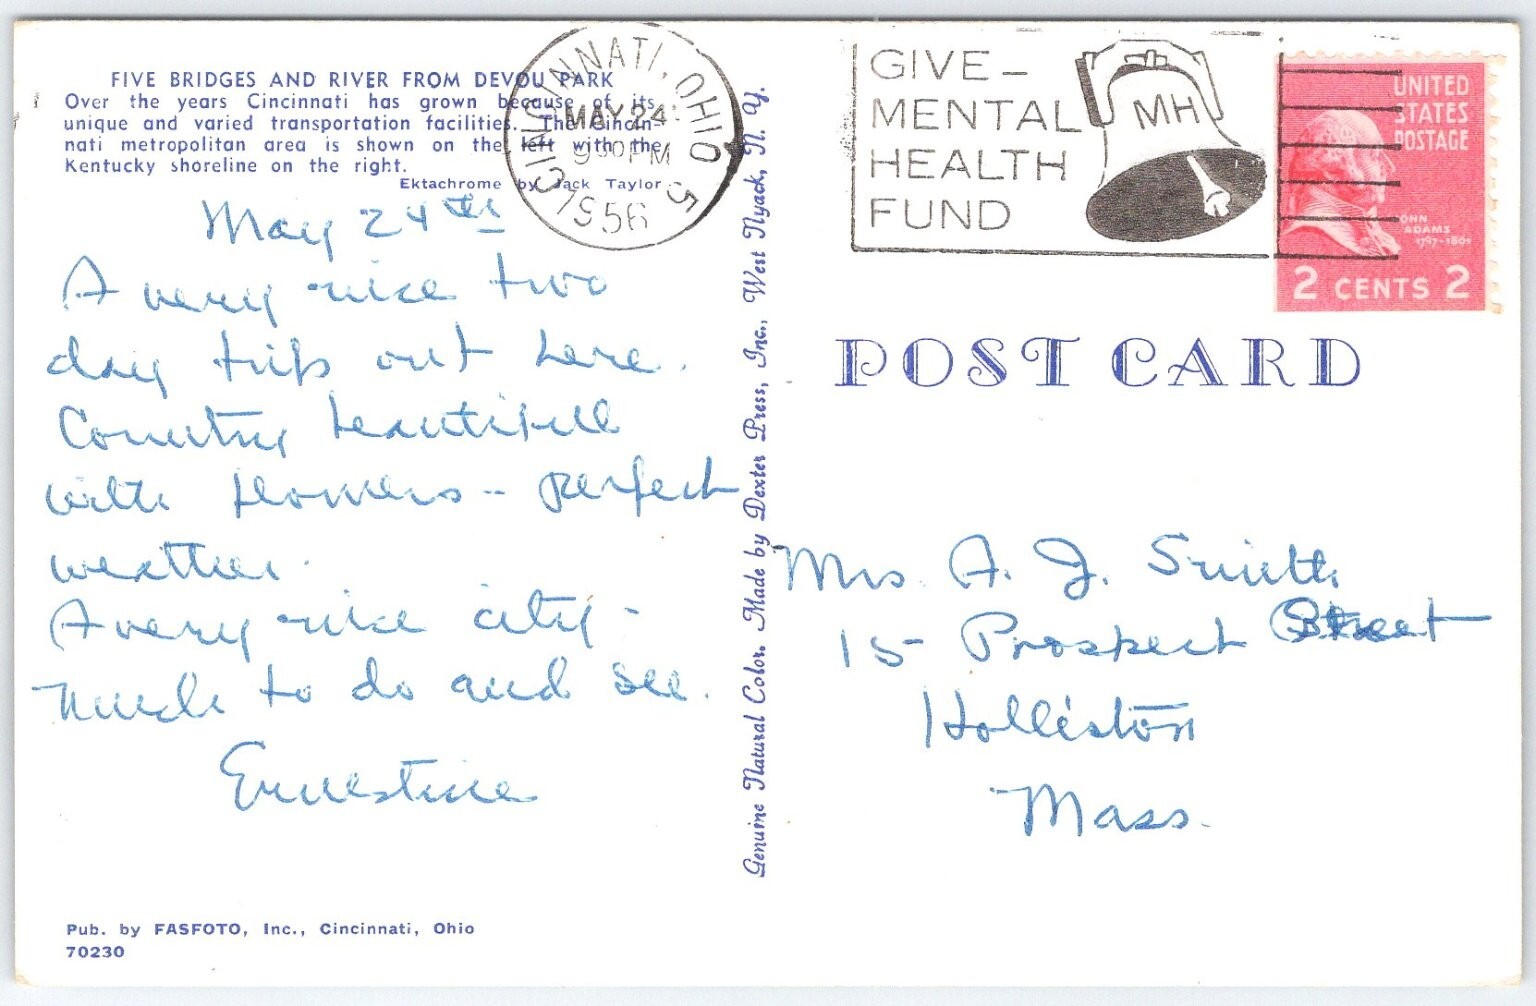 FIVE BRIDGES AND RIVER FROM DEVOU PARK
Over the years Cincinnati has grown because of its
unique and varied transportation facilities. The Cincin-
nati metropolitan area is shown on the left with the
Kentucky shoreline on the right.
Ektachrome by Jack Taylor
May 24th
A very nice two
day trip out here.
Country beautifull
with flowers -- perfect
weather.
A very nice city -
Much to do and see.
Ernestine
Pub. by FASFOTO, Inc., Cincinnati, Ohio
70230
Genuine Natural Color. Made by Dexter Press, Inc., West Nyack, N. Y.
CINCINNATI, OHIO 5
MAY 24
930 PM
1956
GIVE –
MENTAL
HEALTH
FUND
MH
UNITED
STATES
POSTAGE
JOHN
ADAMS
1797-1801
2 CENTS 2
POST CARD
Mrs A. J. Smith
15 Prospect Street
Holliston
Mass.